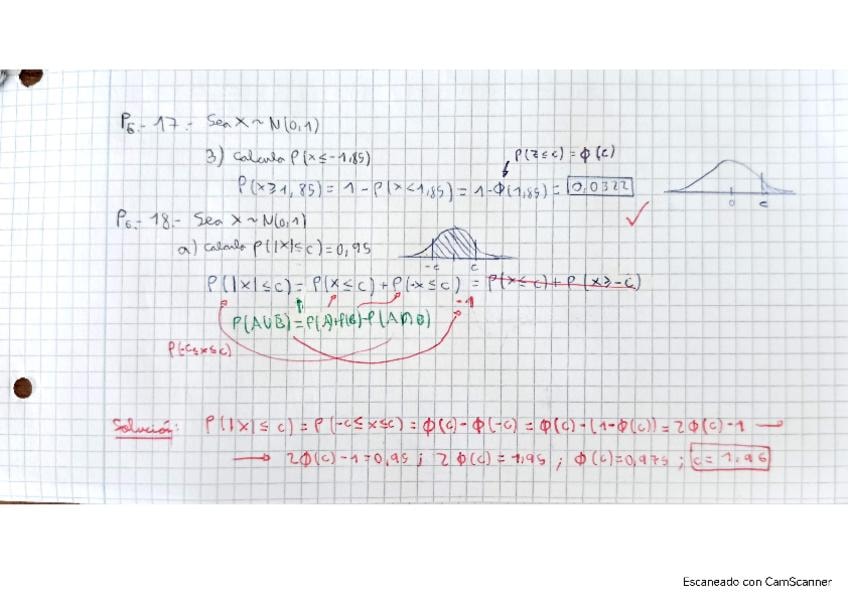 P6.- 17.- Sea X ~ N(0,1)
3) Calcula P(x ≤ -1,85)
P(Z ≤ c) = Φ(c)
P(x ≥ 1,85) = 1 - P(x < 1,85) = 1 - Φ(1,85) = 0,0322
0 c
P6.- 18.- Sea X ~ N(0,1)
a) Calcula P(|X| ≤ c) = 0,95
-c c
P(|X| ≤ c) = P(x ≤ c) + P(-x ≤ c) = P(x ≤ c) + P(x ≥ -c)
-1
P(A∪B) = P(A)+P(B)-P(A∩B)
P(-c ≤ x ≤ c)
Solución: P(|X| ≤ c) = P(-c ≤ x ≤ c) = Φ(c) - Φ(-c) = Φ(c) - (1 - Φ(c)) = 2Φ(c) - 1 →
→ 2Φ(c) - 1 = 0,95 ; 2Φ(c) = 1,95 ; Φ(c) = 0,975 ; c = 1,96
Escaneado con CamScanner